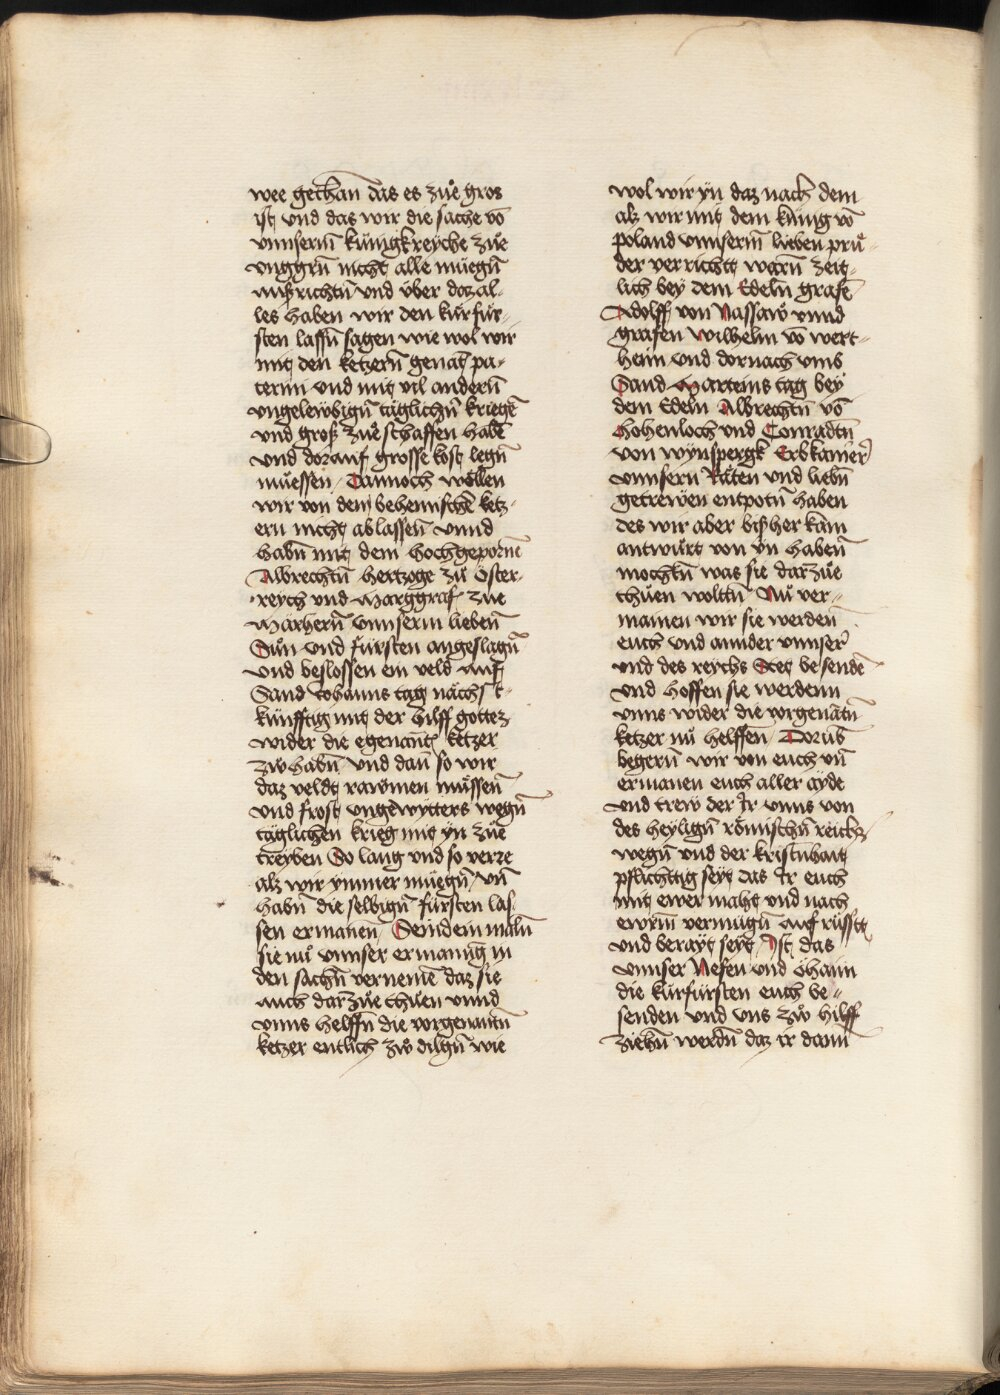 wee gethan das es zuͤe gros
ist und das wir die sache vō
vnnserm̄ küͤnigkreyche zuͤe
vnggrn̄ nicht alle müegn̄
außrichtn̄ und über daz al-
les haben wir den kürfür-
sten lassn̄ sagen wie wol wir
mit den ketzern̄ genāt pa-
terini und mit vil andern̄
vngelewbign̄ täglichn̄ kriegē
und groß zuͤe schaffen habē
und dorauf grosse kost legn̄
müessen / Dannoch wöllen
wir von dem behemischē ketz-
ern nicht ablassen̄ vnnd
habn̄ mit dem hochgepornē
Albrechtn̄ hertzoge zuͦ Öster-
reych und Marggraf zue
Märhern̄ vnnserm lieben̄
Suͤn und fürsten angeslagn̄
und beslossen ein veld auf
Sand Johanns tag nächst
künfftig mit der hilff gottez
wider die egenant̄ ketzer
zw habn̄ und dan̄ so wir
daz veldt rawmen müssen̄
und frost ungewytters wegn̄
täglichen krieg mit yn zuͤe
treyben So lang und so verre
alz wir ymmer müegn̄ / vn̄
habn̄ die selbign̄ fürsten las-
sen ermanen / Seindemmaln̄
sie nuͦ vnnser ermanūg in
den sachn̄ vernemē daz sie
auch darzuͤe thuen vnnd
vnns helffn̄ die vorgenantn̄
ketzer entlich zw dilgn̄ wie
wol wir yn daz nach dem
alz wir mit dem kuͤnig vō
poland vnnserm̄ lieben pruͤ-
der verricht warn̄ zeit-
lich bey dem Edeln̄ grafē
Adolff von Nassaw vnnd
grafen Wilhelm vō wert-
heim und dornach vms
Sand Marteins tag bey
dem Edeln̄ Albrechtn̄ vō
Hohenloch und Conradtn̄
von wynspergk Erbkamērer
vnnsern Räten und liebn̄
getrewen entpotn̄ haben
des wir aber bißher kām
antwürt von yn haben̄
mochtn̄ was sie darzuͤe
thuen woltn̄ Nuͦ ver-
mainen wir sie werden̄
euch und annder vnnser
und des reychs Stet besendē
und hoffen sie werdenn
vnns wider die vorgenātn̄
ketzer nuͦ helffen / Dorūb
begern̄ wir von euch vn̄
ermanen euch aller ayde
und trew der Ir vnns von
des heylign̄ römischn̄ reichz
wegn̄ und der kristn̄hait
pflichttig seyt das Ir euch
mit ewer macht und nach
ewrm̄ vermügn̄ auf rüsstt
und berayt seyt / Ist das
vnnser Nefen und öhaim
die kürfürsten euch be-
senden und uns zw hilff
ziehn̄ werdn̄ daz ir dann